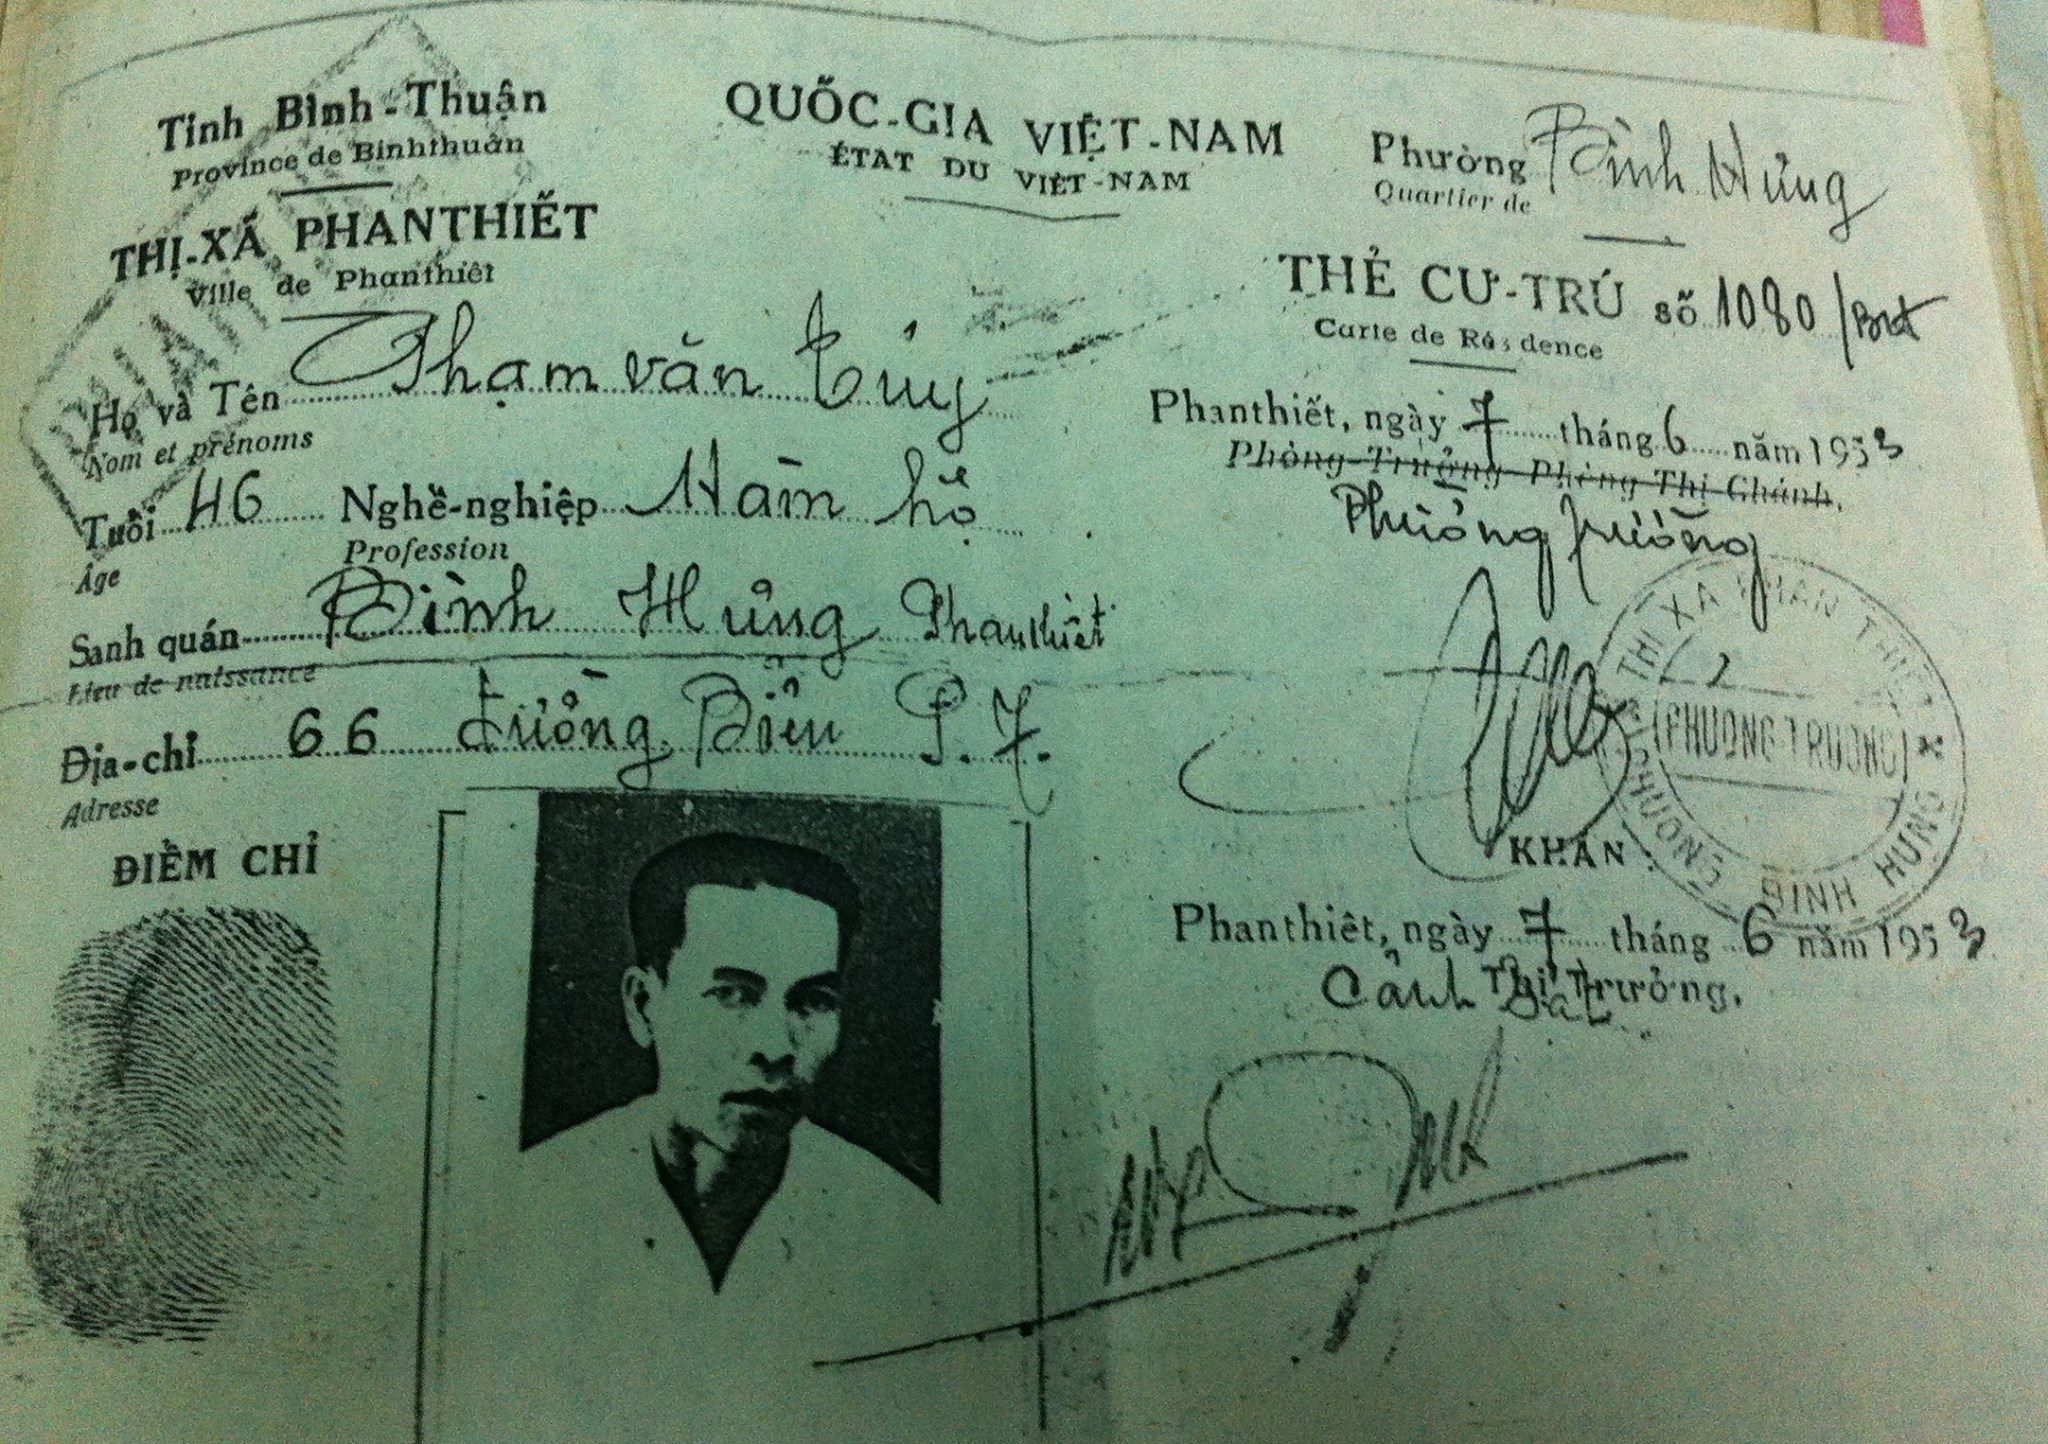 Tỉnh Bình-Thuận
Province de Binhthuân
THỊ-XÃ PHANTHIẾT
Ville de Phanthiêt
QUỐC-GIA VIỆT-NAM
ÉTAT DU VIÊT-NAM
Phường Bình Hưng
Quartier de
THẺ CƯ-TRÚ số 1080/
Carte de Résidence
Họ và Tên Phạm văn
Nom et prénoms
Tuổi 46 Nghề-nghiệp Hàm hộ
Âge Profession
Sanh quán Bình Hưng Phanthiết
Lieu de naissance
Địa-chỉ 66 đường Biển P. 7.
Adresse
ĐIỀM CHỈ
Phanthiết, ngày 7 tháng 6 năm 1953
Phòng-Trưởng Phòng Thị Chánh,
Phường trưởng
THI XA PHAN THIET
PHUONG TRUONG
PHUONG BINH HUNG
KHÁN
Phanthiêt, ngày 7 tháng 6 năm 1953
Thị Trưởng,